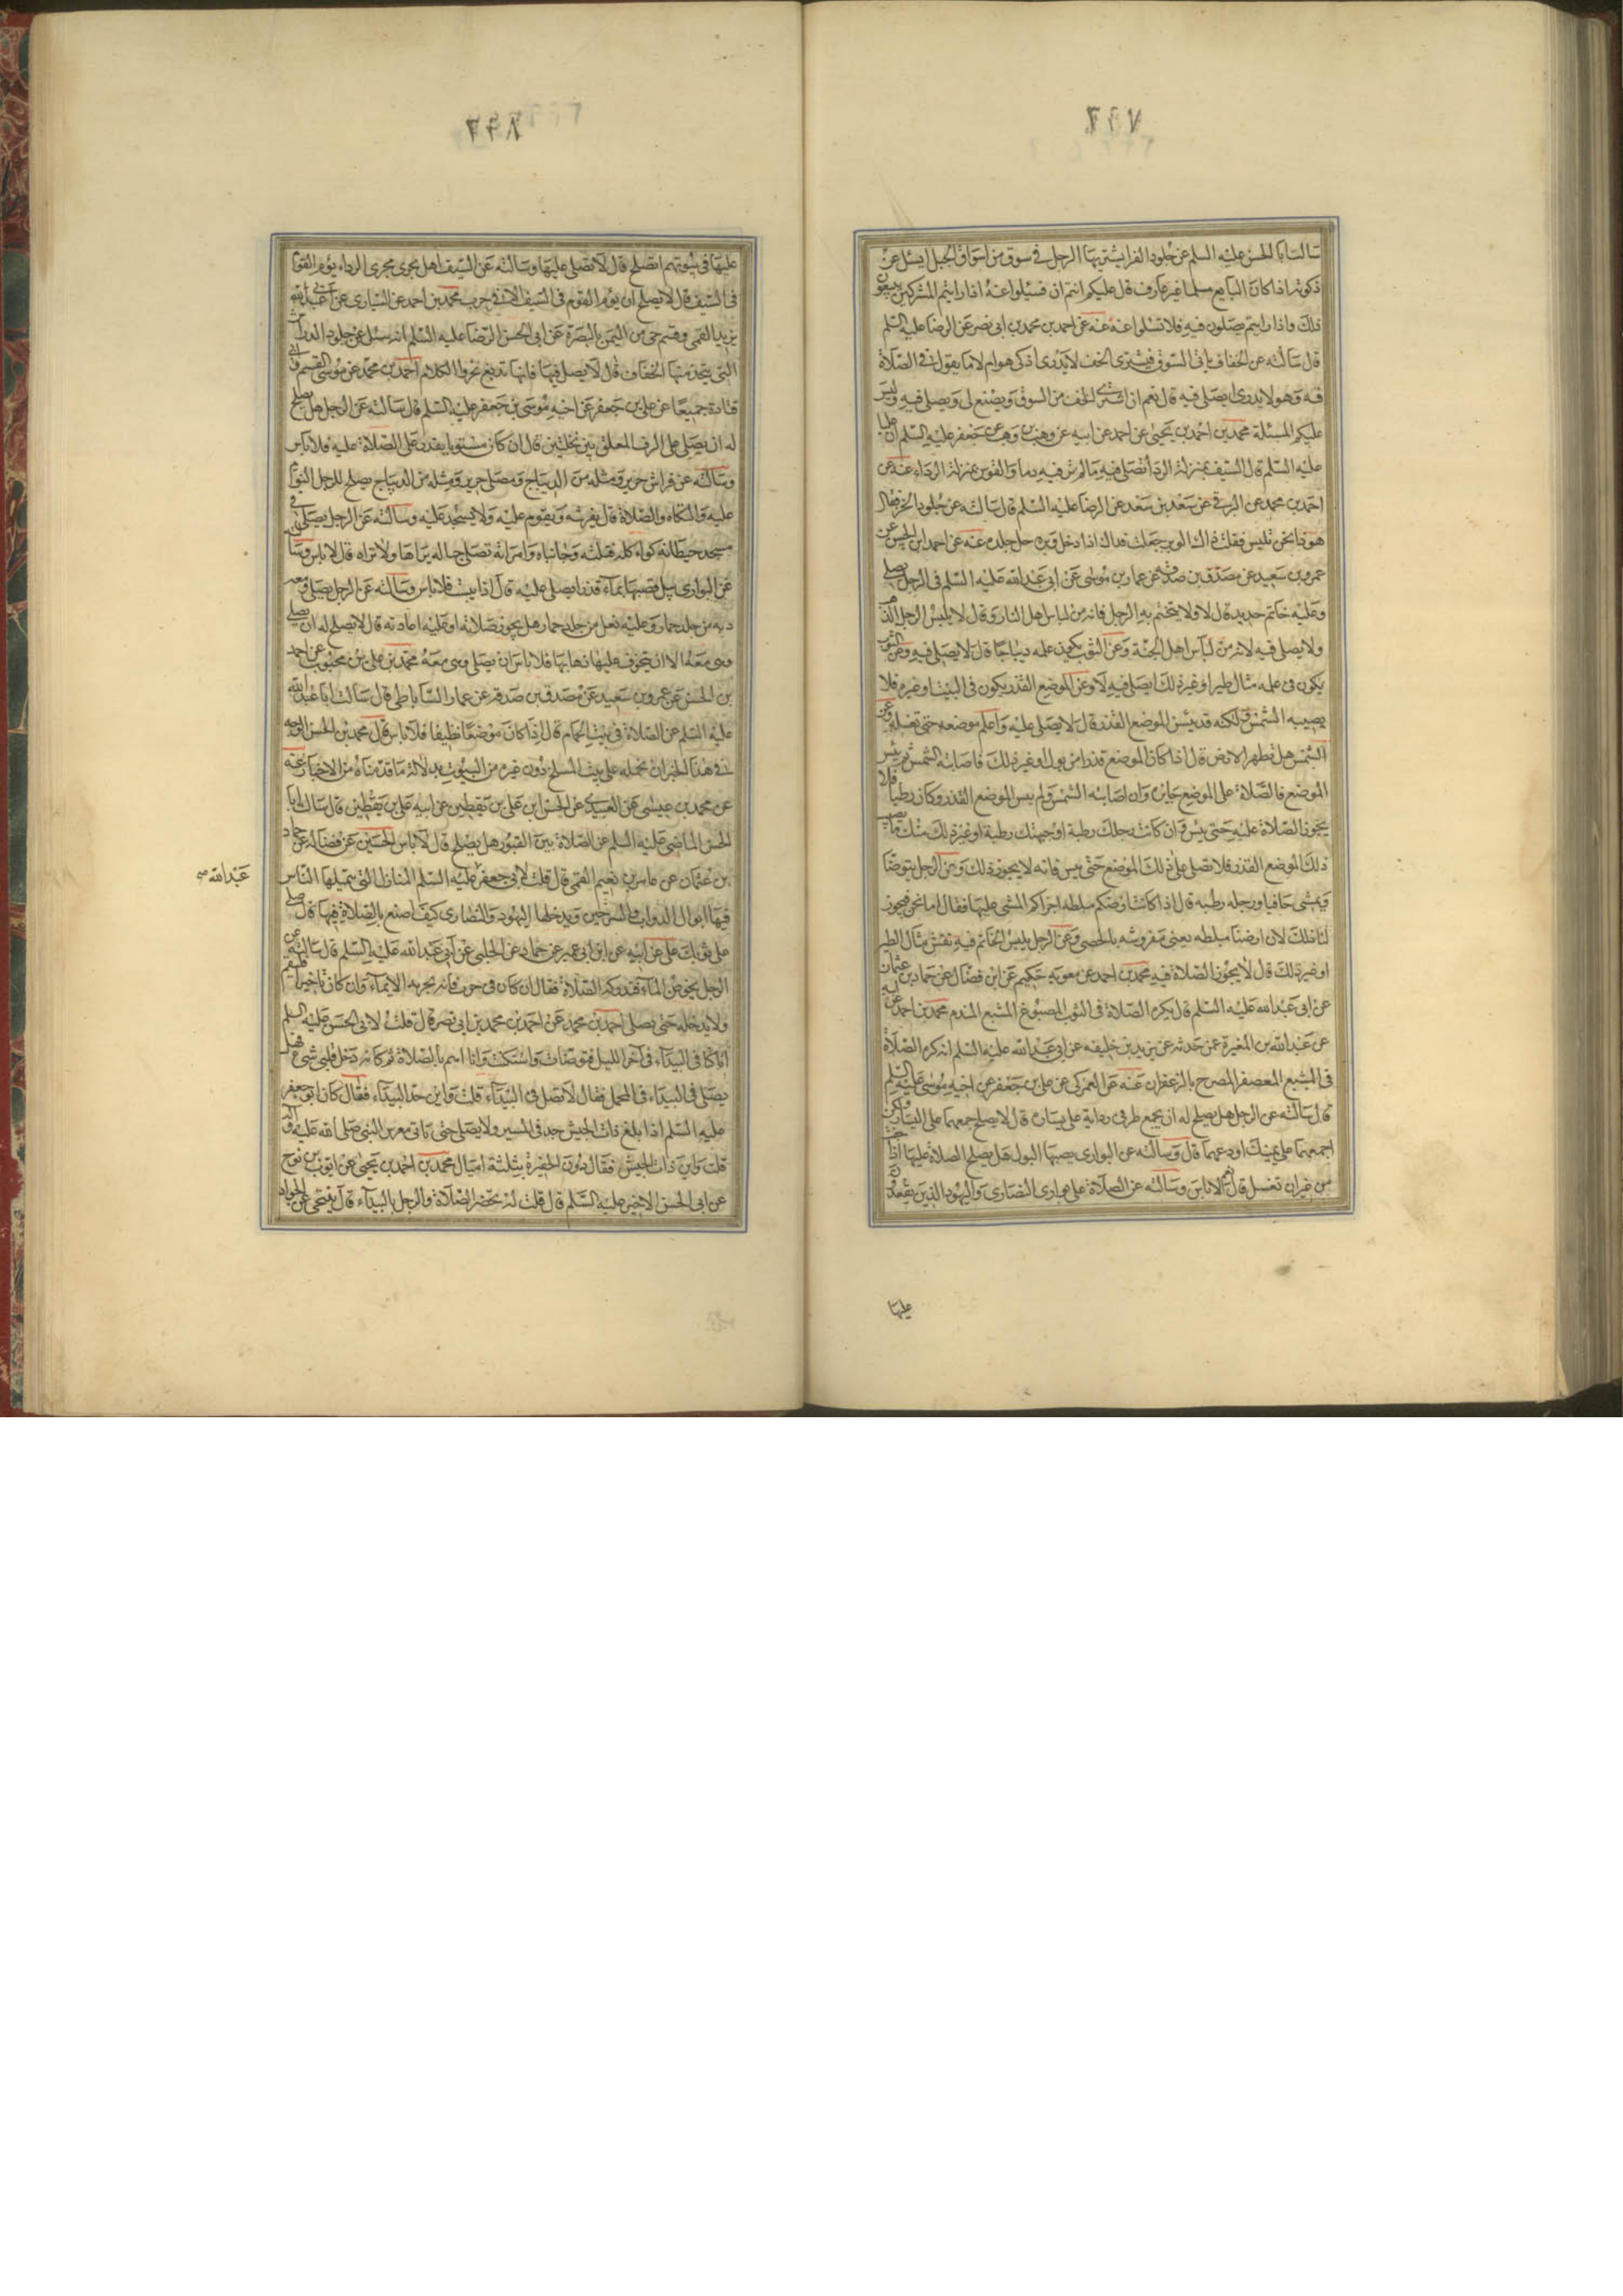 سالت ابا الحسن عليه السلم عن جلود الفرا يشتريها الرجل في سوق من اسواق الجبل ايسئل عن
ذكوته اذا كان البايع مسلما غير عارف قال عليكم انتم ان تسئلوا عنه اذا رايتم المشركين يبيعون
ذلك واذا رايتم يصلون فيه فلا تسئلوا عنه عنه عن احمد بن محمد بن ابى نصر عن الرضا عليه السلم
قال سالته عن الخفاف ياتى السوق فيشترى الخف لا يدرى اذكى هو ام لا ما يقول فى الصلاة
فيه وهو لا يدرى ايصلى فيه قال نعم ان اشترى الخف من السوق ويصنع لى ويصلى فيه وليس
عليكم المسئلة محمد بن احمد بن يحيى عن احمد عن ابيه عن وهب بن وهب عن جعفر عليه السلم ان عليا
عليه السلم قال السيف بمنزلة الردا تصلى فيه ما لم تر فيه دما والقوس بمنزلة الرداء عنه عن
احمد بن محمد عن البرقى عن سعد بن سعد عن الرضا عليه السلم قال سالته عن جلود الخز فقال
هو ذا نحن نلبس فقلت ذاك الوبر جعلت فداك اذا حل وبره حل جلده عنه عن احمد ابن الحسن عن
عمرو بن سعيد عن مصدق بن صدقة عن عمار بن موسى عن ابى عبد الله عليه السلم فى الرجل يصلى
وعليه خاتم حديد قال لا ولا يتختم به الرجل فانه من لباس اهل النار وقال لا يلبس الرجل الذهب
ولا يصلى فيه لانه من لباس اهل الجنة وعن الثوب يكون علمه ديباجا قال لا يصلى فيه وعن الثوب
يكون فى علمه مثال طير او غير ذلك ايصلى فيه لا وعن الموضع القذر يكون فى البيت او غيره فلا
يصيبه الشمس ولكنه قد يبس الموضع القذر قال لا يصلى عليه واعلم موضعه حتى تغسله وعن
الشمس هل تطهر الارض قال اذا كان الموضع قذرا من بول او غير ذلك فاصابته الشمس ثم يبس
الموضع فالصلاة على الموضع جايزه وان اصابته الشمس ولم يبس الموضع القذر وكان رطبا فلا
يجوز الصلاة عليه حتى يبس وان كانت رجلك رطبة او جبهتك رطبة او غير ذلك منك ما يصيب
ذلك الموضع القذر فلا تصل على ذلك الموضع حتى يبس فانه لا يجوز ذلك وعن الرجل يتوضا
ويمشى حافيا ورجله رطبه قال اذا كانت ارضكم مبلطه اجزاكم المشى عليها فقال اما نحن فيجوز
لنا ذلك لان ارضنا مبلطه يعنى مفروشه بالحصى وعن الرجل يلبس الخاتم فيه نقش مثال الطير
او غير ذلك قال لا يجوز الصلاة فيه محمد بن احمد عن معويه بن حكيم عن ابن فضال عن حماد بن عثمان
عن ابى عبد الله عليه السلم قال يكره الصلاة فى الثوب المصبوغ المشبع المفدم محمد بن احمد عن
عن عبد الله بن المغيرة عمن حدثه عن يزيد بن خليفه عن ابى عبد الله عليه السلم انه كره الصلاة
فى المشبع المعصفر المضرج بالزعفران عنه عن العمركى عن على بن جعفر عن اخيه موسى عليه السلم
قال سالته عن الرجل هل يصلح له ان يجمع طرفى ردايه على يساره قال لا يصلح جمعهما على اليسار ولكن
اجمعهما على يمينك او دعهما قال وسالته عن البوارى يصيبها البول هل يصلح الصلاة عليها اذا جفت
من غير ان تغسل قال نعم لا باس وسالته عن الصلاة على بوارى النصارى واليهود الذين يقعدون
عليها
عليها فى بيوتهم اتصلح قال لا يصلى عليها وسالته عن السيف هل يجرى مجرى الرداء يؤم القوم
فى السيف قال لا يصلح ان يؤم القوم فى السيف الا فى حرب محمد بن احمد عن السيارى عن ابى عبد الله
يزيد القمى وقثم حى من اليمن بالبصرة عن ابى الحسن الرضا عليه السلم انه سئل عن جلود الدارش
التى يتخذ منها الخفاف قال لا يصل فيها فانها تدبغ بخرؤ الكلاب احمد بن محمد عن موسى القسم وابى
قتادة جميعا عن على بن جعفر عن اخيه موسى بن جعفر عليه السلم قال سالته عن الرجل هل يصلح
له ان يصلى على الرف المعلق بين نخلتين قال ان كان مستويا يقدر على الصلاة عليه فلا باس
وسالته عن فراش حرير ومثله من الديباج ومصلى حرير ومثله من الديباج يصلح للرجل النوم
عليه والتكاه والصلاة قال يفرشه ويقوم عليه ولا يسجد عليه وسالته عن الرجل يصلى فى
مسجد حيطانه كواء كله قبلته وجانباه وامراته تصلى حياله يراها ولا تراه قال لا باس وسالته
عن البوارى يبل قصبها بماء قذر ايصلى عليه قال اذا يبست فلا باس وسالته عن الرجل يصلى ومعه
دبه من جلد حمار وعليه نعل من جلد حمار هل يجوز صلاته او عليه اعادته قال لا يصلح له ان يصلى
وهى معه الا ان يتخوف عليها ذهابها فلا باس ان يصلى وهى معه محمد بن على بن محبوب عن احمد
بن الحسن عن عمرو بن سعيد عن مصدق بن صدقه عن عمار الساباطى قال سالت ابا عبد الله
عليه السلم عن الصلاة فى بيت الحمام قال اذا كان موضعا نظيفا فلا باس قال محمد بن الحسن الوجه
فى هذا الخبر ان نحمله على بيت المسلخ دون غيره من البيوت بدلالة ما قدمناه من الاخبار عنه
عن محمد بن عيسى عن العبيدى عن الحسن ابن على بن يقطين عن ابيه على بن يقطين قال سالت ابا
الحسن الماضى عليه السلم عن الصلاة بين القبور هل يصلح قال لا باس الحسين عن فضاله عن حماد
بن عثمان عن عامر بن نعيم القمى قال قلت لابى جعفر عليه السلم المنازل التى ينزلها الناس
عبد الله
فيها ابوال الدواب والسرجين ويدخلها اليهود والنصارى كيف اصنع بالصلاة فيها قال صل
على ثوبك على عن ابيه عن ابن ابى عمير عن حماد عن الحلبى عن ابى عبد الله عليه السلم قال سالته عن
الرجل يخوض الماء فتدركه الصلاة فقال ان كان فى حرب فانه يجزيه الايماء وان كان تاجرا فليقم
ولا يدخله حتى يصلى احمد بن محمد عن احمد بن محمد بن ابى نصر قال قلت لابى الحسن عليه السلم
انا كنا فى البيداء فى آخر الليل فتوضات واستكت وانا اهم بالصلاة ثم كانه دخل قلبى شى فهل
يصلى فى البيداء فى المحمل فقال لا تصل فى البيداء قلت واين حد البيداء فقال كان ابو جعفر
عليه السلم اذا بلغ ذات الجيش جد فى المسير ولا يصلى حتى ياتى معرس النبى صلى الله عليه وآله
قلت واين ذات الجيش فقال دون الحفيرة بثلثة اميال محمد بن احمد بن يحيى عن ايوب بن نوح
عن ابى الحسن الاخير عليه السلم قال قلت له يحضر الصلاة والرجل بالبيداء قال يتنحى عن الجواد